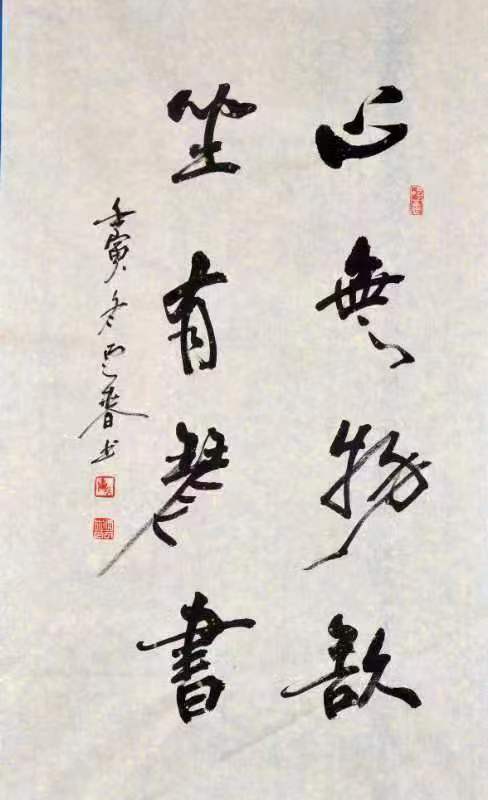 心無物欲
坐有琴書
壬寅冬雲春书